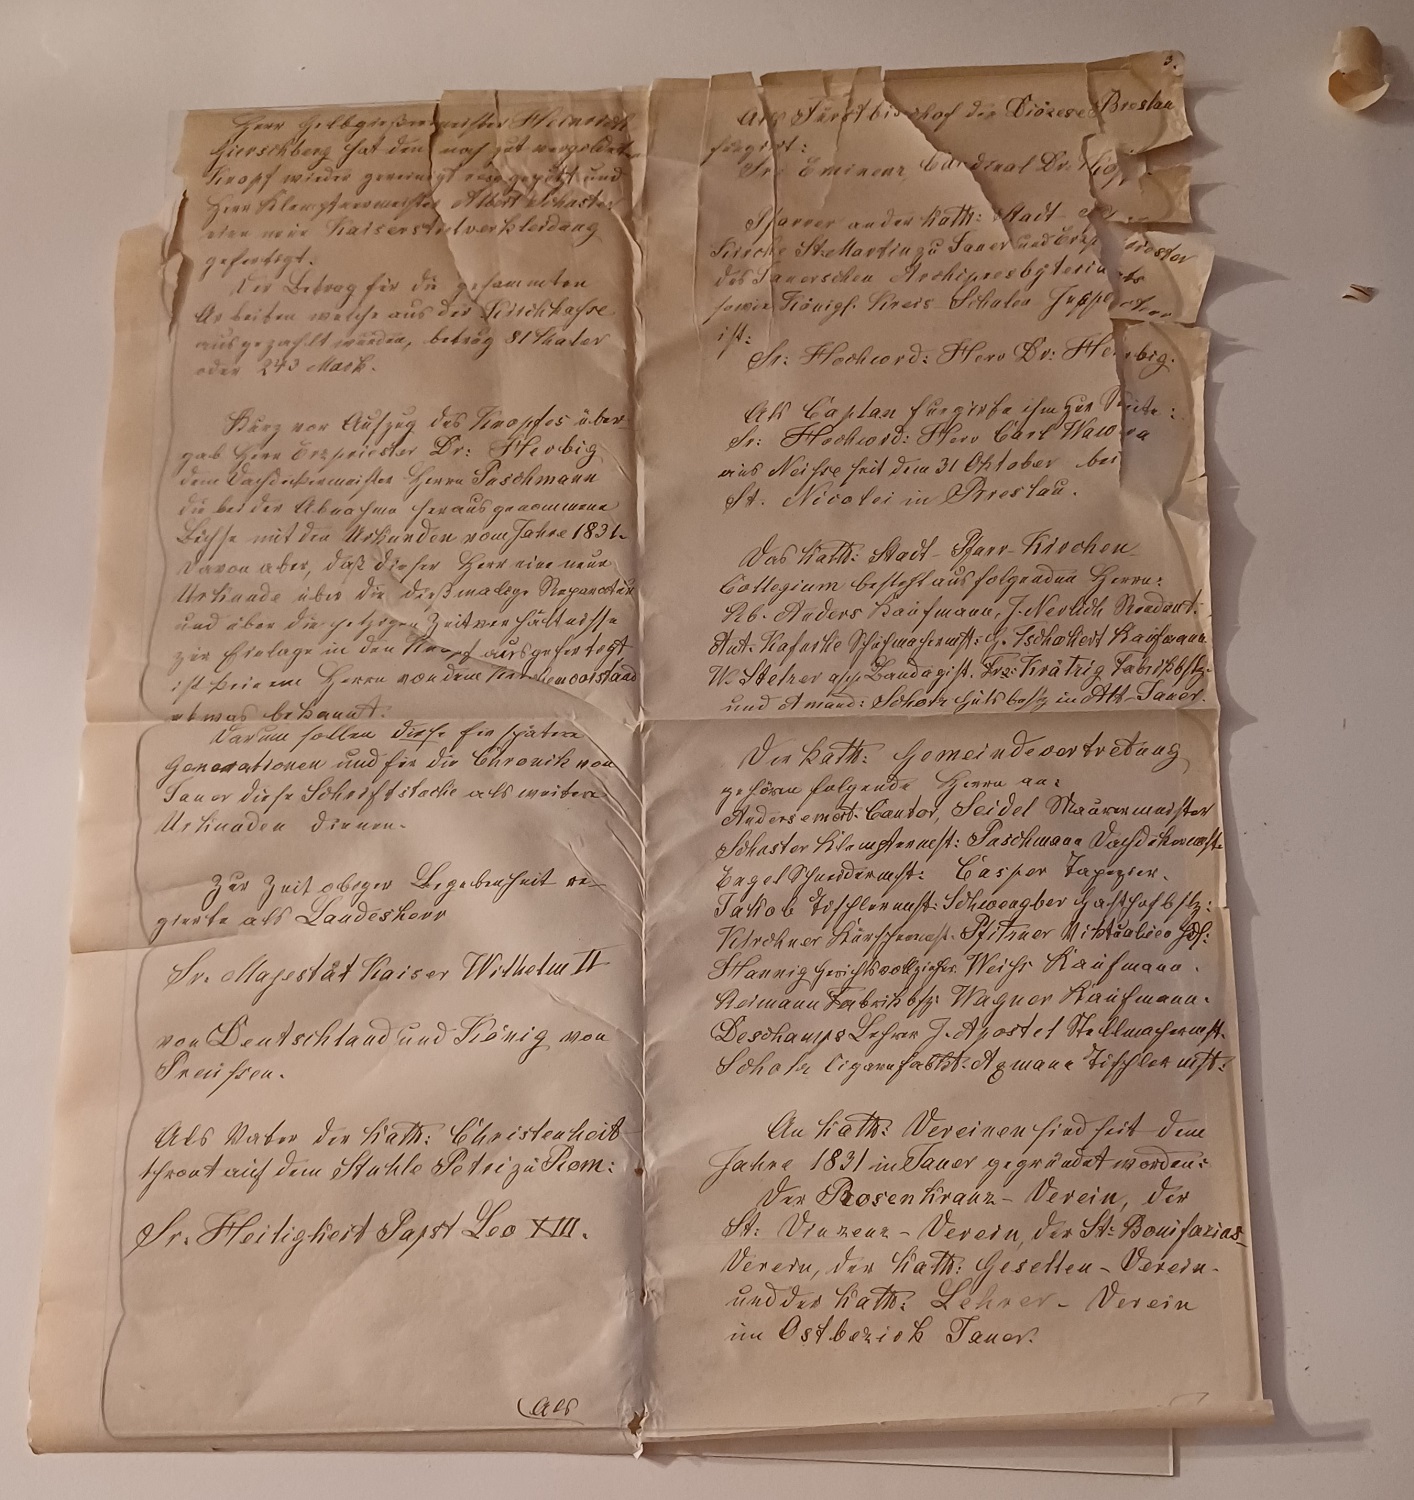 Herr Gelbgießermeister Heinrich
Hierschberg hat den noch gut vergoldeten
Knopf wieder gereinigt und
Herr Klemptnermeister Albert Schaster
eine neue Kaiserstielverkleidung
gefertigt.
Der Betrag für die gesammten
Arbeiten welche aus der Kirchkasse
ausgezahlt wurden, betrug 81 Thaler
oder 243 Mark.
Kurz vor Aufzug des Knopfes über-
gab Herr Erzpriester Dr: Herbig
dem Dachdeckermeister Herrn Paschmann
die bei der Abnahme herausgenommene
Büchse mit den Urkunden vom Jahre 1831.
Davon aber, daß dieser Herr eine neue
Urkunde über die dießmalige Reparatur
und über die jetzigen Zeitverhältnisse
zur Einlage in den Knopf ausgefertigt
ist keinem Herrn von dem Kirchenvorstand
etwas bekannt.
Darum sollen diese für spätere
Generationen und für die Chronik von
Jauer diese Schriftstücke als weitere
Urkunden dienen.
Zur Zeit obiger Begebenheit re-
gierte als Landesherr
Sr. Majestät Kaiser Wilhelm II
von Deutschland und König von
Preussen.
Als Vater der kath: Christenheit
thront auf dem Stuhle Petri zu Rom:
Sr. Heiligkeit Papst Leo XIII.
Als
3.
Als Fürstbischof der Diözese Breslau
fungirt:
Sr: Eminenz Cardinal Dr: Kopp
Pfarrer an der kath: Stadt
Kirche St. Martin zu Jauer und Erzpriester
des Jauerschen Archipresbyteriats
sowie Königl. Kreis Schulen Inspector
ist:
Sr: Hochwrd: Herr Dr: Herbig.
Als Caplan fungirte ihm zur Seite:
Sr: Hochwrd: Herr Carl Wawra
aus Neisse seit dem 31 Oktober bei
St. Nicolei in Breslau.
Das kath: Stadt-Pfarr-Kirchen
Collegium besteht aus folgenden Herrn:
Rb. Anders Kaufmann, J. Nerlich Rendant:
Ant. Kafurke Schuhmachermst: G. Tschöhert Kaufmann
W. Stelzer Bandagist. Frz: Krätzig Fabrikbstz:
und Amand: Scholz Gutsbesitz in Alt-Jauer.
Der kath: Gemeindevertretung
gehören folgende Herrn an:
Anders emerit: Cantor, Seidel Maurermeister
Schaster Klemptnermst: Paschmann Dachdekermst.
Engel Schneidermst: Casper Tapezier.
Jakob Tischlermst: Schwengber Gasthofbstz:
Kirchner Kürschnermst. Pfitzner Viktualien Hdl:
Hannig Gerichtsvollzieher. Weihs Kaufmann.
Reimann Fabrikbstz: Wagner Kaufmann.
Deschamps Lehrer J. Apostel Stellmachermst.
Scholz Cigarrnfabkt: Axmann Tischlermst:
An kath: Vereinen sind seit dem
Jahre 1831 in Jauer gegründet worden:
Der Rosenkranz-Verein, der
St: Vinzenz-Verein, der St: Bonifazius-
Verein, der kath: Gesellen-Verein-
und der kath: Lehrer-Verein
im Ostbezirk Jauer.